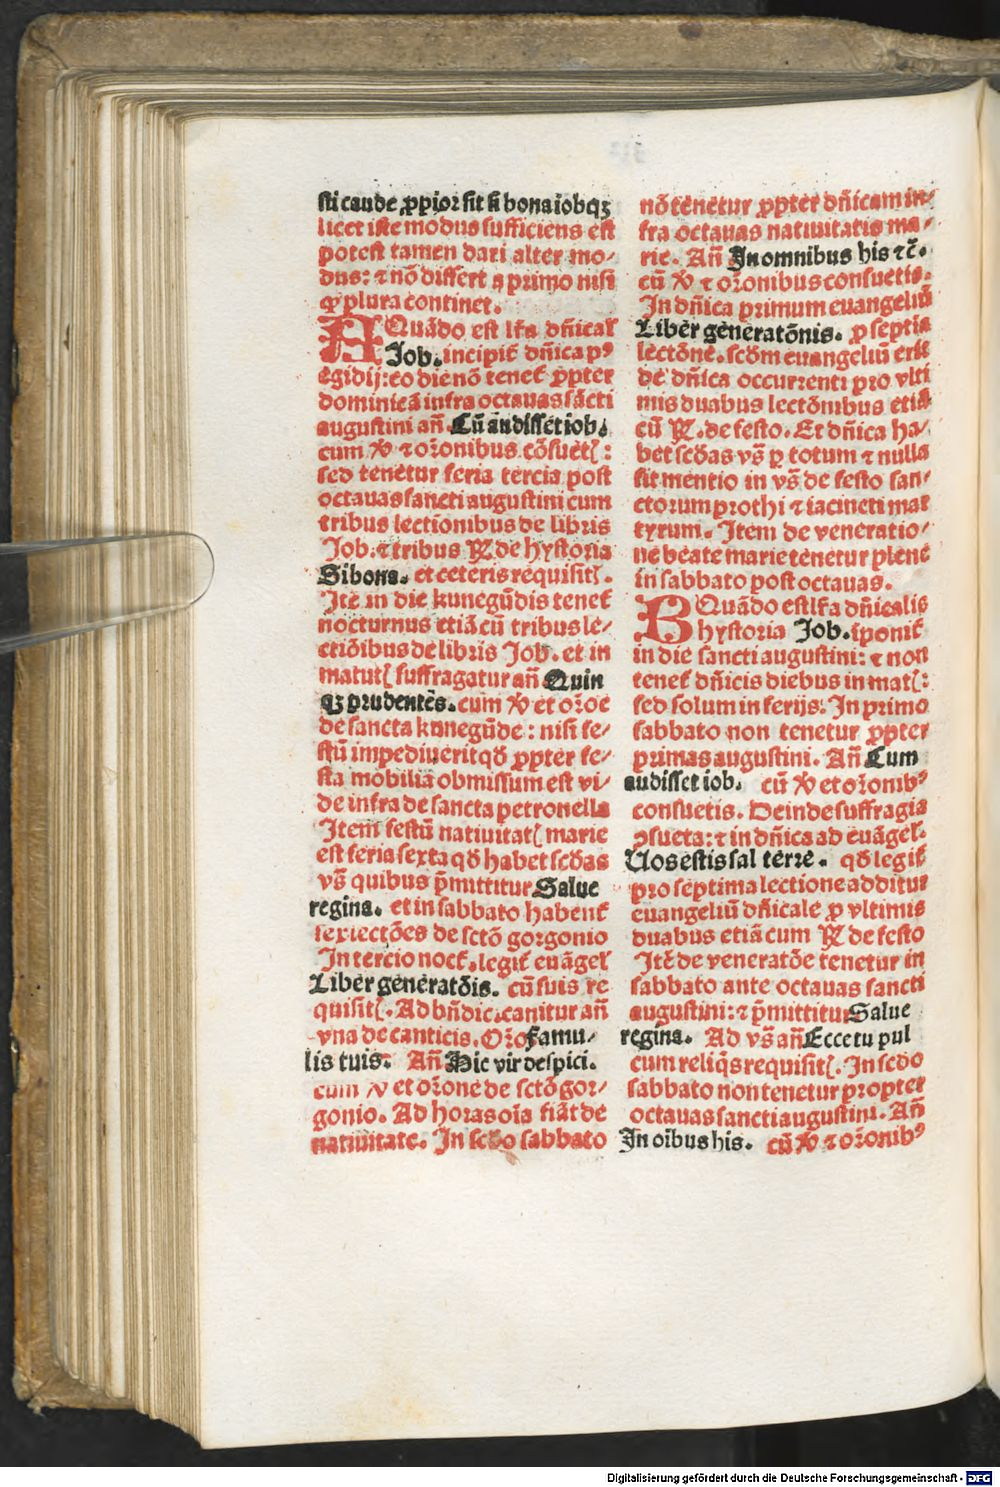 sti caude ꝓpior sit si bona iobqꝫ
licet iste modus sufficiens est
potest tamen dari alter mo-
dus: ⁊ nō differt a primo nisi
ꝙ plura continet.
A Quādo est lr̄a dn̄ical'
Job. incipit᷑ dn̄ica pꝰ
egidij: eo die nō tenet᷑ ꝓpter
dominicā infra octauas sācti
augustini an̄ Cū audisset iob.
cum ꝟ ⁊ or̄onibus cōsuetꝭ:
sed tenetur feria tercia post
octauas sancti augustini cum
tribus lectionibus de libris
Job. ⁊ tribus ℟ de hystoria
Si bona. et ceteris requisitꝭ.
Itē in die kunegūdis tenet᷑
nocturnus etiā cū tribus le-
ctiōibus de libris Job. et in
matutꝭ suffragatur an̄ Quin
qꝫ prudentes. cum ꝟ et or̄oe
de sancta kunegūde: nisi fe-
stū impediuerit qd̄ ꝓpter fe-
sta mobilia obmissum est vi-
de infra de sancta petronella
Item festū natiuitatꝭ marie
est feria sexta qd̄ habet scd̄as
vs̄ quibus p̄mittitur Salue
regina. et in sabbato habent᷑
sex lectōes de sctō gorgonio
In tercio noct. legit᷑ euāgel'
Liber generatōis. cū suis re
quisitꝭ. Ad bn̄dic. canitur an̄
vna de canticis. Or̄o Famu-
lis tuis. An̄ Hic vir despici.
cum ꝟ et or̄one de sctō gor-
gonio. Ad horas oīa fiāt de
natiuitate. In scd̄o sabbato
nō tenetur ꝓpter dn̄icam in-
fra octauas natiuitatis ma-
rie. An̄ In omnibus his ⁊c̄.
cū ꝟ ⁊ or̄onibus consuetis.
In dn̄ica primum euangeliū
Liber generatōnis. ꝓ septīa
lectōne. scd̄m euangeliū erit
de dn̄ica occurrenti pro vlti
mis duabus lectōnibus etiā
cū ℟. de festo. Et dn̄ica ha-
bet scd̄as vs̄ ꝑ totum ⁊ nulla
sit mentio in vs̄ de festo san-
ctorum prothi ⁊ iacincti mar
tyrum. Item de veneratio-
ne beate marie tenetur plene
in sabbato post octauas.
B Quādo est lr̄a dn̄icalis
hystoria Job. īponit᷑
in die sancti augustini: ⁊ non
tenet᷑ dn̄icis diebus in matꝭ:
sed solum in ferijs. In primo
sabbato non tenetur ꝓpter
primas augustini. An̄ Cum
audisset iob. cū ꝟ et or̄onibꝰ
consuetis. Deinde suffragia
ꝯsueta: ⁊ in dn̄ica ad euāgel'.
Vos estis sal terre. qd̄ legit᷑
pro septima lectione additur
euangeliū dn̄icale ꝓ vltimis
duabus etiā cum ℟ de festo
Itē de veneratōe tenetur in
sabbato ante octauas sancti
augustini: ⁊ p̄mittitur Salue
regina. Ad vs̄ an̄ Ecce tu pul
cum reliq̄s requisitꝭ. In scd̄o
sabbato non tenetur propter
octauas sancti augustini. An̄
In oībus his. cū ꝟ ⁊ or̄onibꝰ
Digitalisierung gefördert durch die Deutsche Forschungsgemeinschaft - DFG